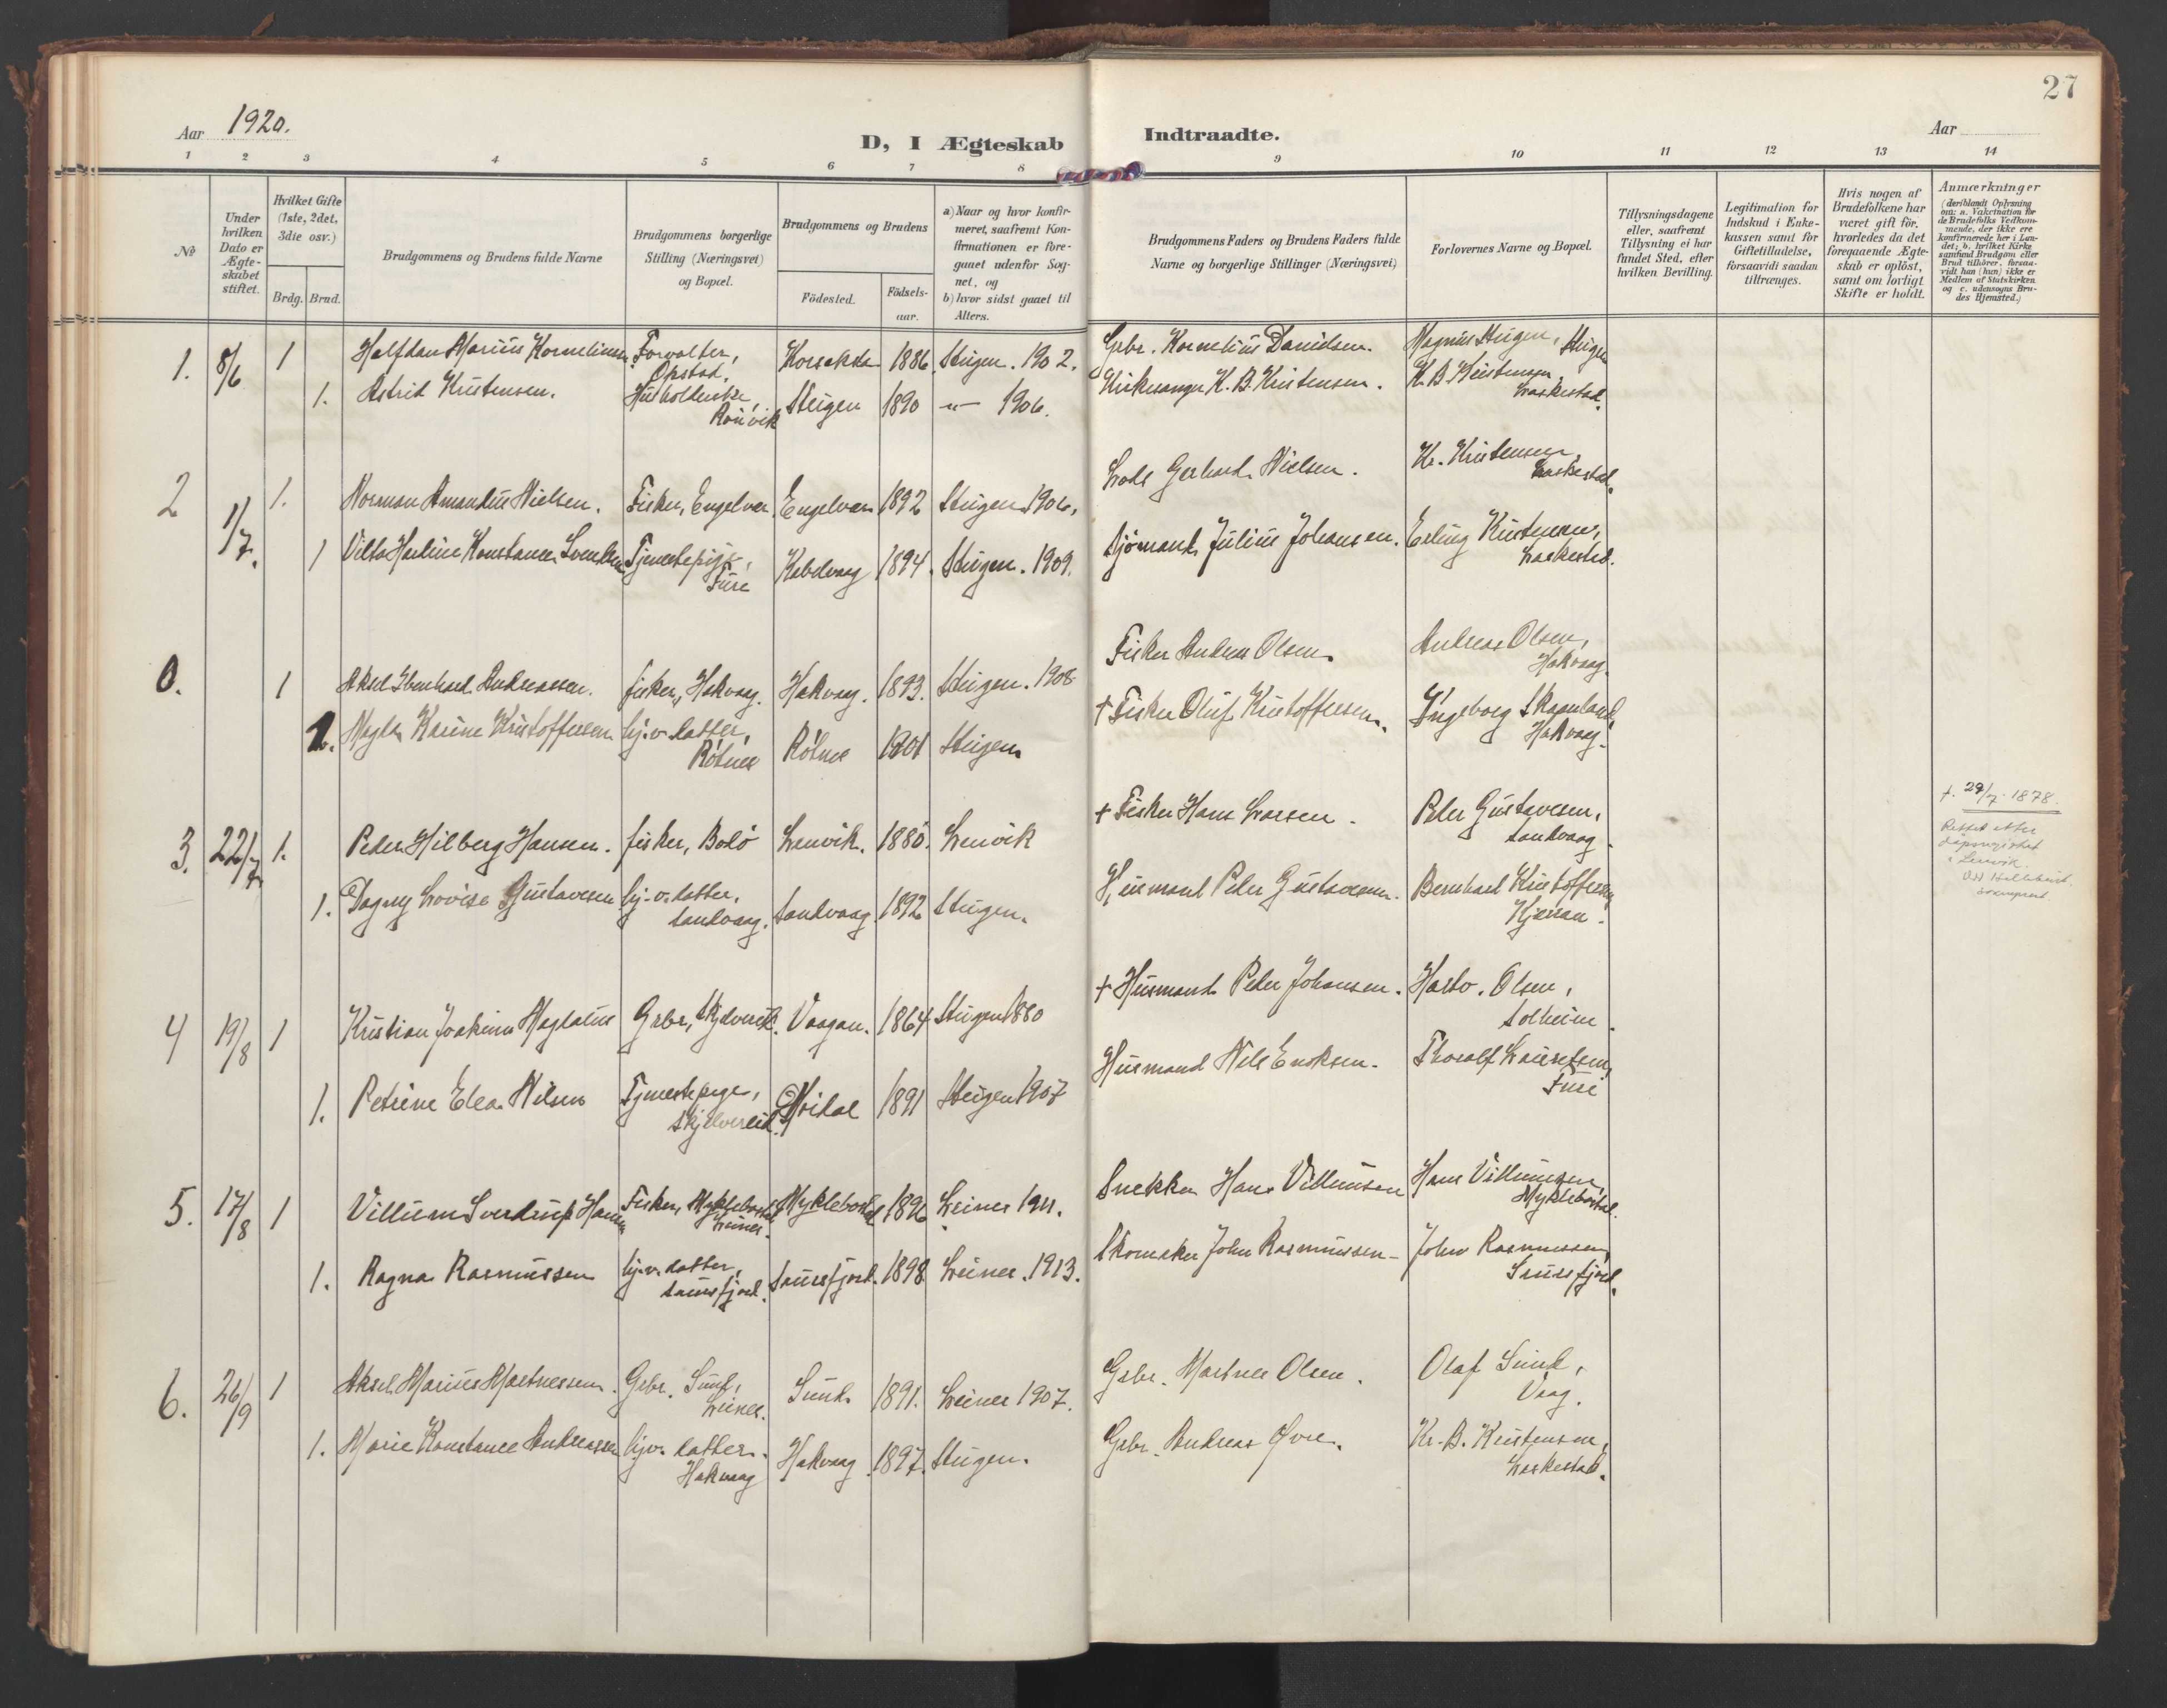 27
Aar 1920.
D, I Ægteskab Indtraadte.
Aar
1 2 3 4 5 6 7 8 9 10 11 12 13 14
№
Under hvilken Dato er Ægte-skabet stiftet.
Hvilket Gifte (1ste, 2det, 3die osv.)
Brdg. Brud.
Brudgommens og Brudens fulde Navne
Brudgommens borgerlige Stilling (Næringsvei) og Bopæl.
Brudgommens og Brudens
Fødested.
Fødsels-aar.
a) Naar og hvor konfir-meret, saafremt Kon-firmationen er fore-gaaet udenfor Sog-net, og
b) hvor sidst gaaet til Alters.
Brudgommens Faders og Brudens Faders fulde Navne og borgerlige Stillinger (Næringsvei)
Forlovernes Navne og Bopæl.
Tillysningsdagene eller, saafremt Tillysning ei har fundet Sted, efter hvilken Bevilling.
Legitimation for Indskud i Enke-kassen samt for Giftetilladelse, forsaavidt saadan tiltrænges.
Hvis nogen af Brudefolkene har været gift før, hvorledes da det foregaaende Ægte-skab er opløst, samt om lovligt Skifte er holdt.
Anmærkninger
(deriblandt Oplysning om: a. Vakcination for de Brudefolks Vedkom-mende, der ikke ere konfirmerede her i Lan-det; b. hvilket Kirke samfund Brudgom eller Brud tilhører, forsaa-vidt han (hun) ikke er Medlem af Statskirken og c. udensogns Bru-des Hjemsted.)
1. 8/6 1 Halfdan Marius Kornelius Forvalter, Opstad. 1886. Steigen. 1902. Gbr. Kornelius Danielsen. Magnus Steigen, Steigen
1. Astrid Kristensen. Husholderske, Rönvik Steigen 1890 -"- 1906. Kirkesanger K. B. Kristensen. K. B. Kristensen, Laskestad.
2 1/7. 1. Norman Amandus Nielsen. Fisker, Engelvær. Engelvær 1892 Steigen 1906. Lods Gerhard Nielsen. Kr. Kristensen, Laskestad.
1 Konstance Tjenestepige, Fure Kabelvaag 1894. Steigen. 1909. Sjømand Julius Johansen. Erling Kristensen, Laskestad.
0. 1 Aksel Andreassen. fisker, Hakvaag. Hakvaag. 1893. Steigen. 1908 Fisker Andreas Olsen. Andreas Olsen, Hakvaag.
1. Magda Karine Kristoffersen hj.v. datter, Rötnes Rötnes 1901 Steigen † Fisker Oluf Kristoffersen. Ingeborg Skagenland, Hakvaag.
3. 22/7 1. Peder Hilberg Hansen. fisker, Bolö Lenvik. 1880. Lenvik † Fisker Hans Larsen. Peder Gustavsen, Sandvaag.
f. 29/7 1878.
Rettet etter dåpsregistret i Lenvik.
1. Dagny Lovise Gustavsen hj.v. datter, Sandvaag. Sandvaag. 1892 Steigen. Husmand Peder Gustavsen. Bernhard Kristoffersen, Kjerran.
4 19/8 1 Kristian Joakim Magdalus Grbr., Skjelvereid. Vaagan. 1864 Steigen 1880 † Husmand Peder Johansen. Hartv. Olsen, Solheim.
1. Petrine Elea Nilsen Tjenestepige, Skjelvereid. 1891 Steigen 1907 Husmand Nils Eriksen. Thoralf Lauretsen, Fure
5. 17/8 1 Villum Sverdrup Hansen Fisker, Myklebostad Leines. Myklebostad 1896. Leines 1911. Snekker Hans Villumsen Hans Villumsen, Myklebostad.
1. Ragna Rasmussen hj.v. datter, Saursfjord. Saursfjord. 1898 Leines. 1913. Skomaker John Rasmussen- John Rasmussen, Saursfjord.
6. 26/9 1 Aksel Marius Martnessen. Grbr. Sund, Leines. Sund. 1891. Leines 1907. Grbr. Martnes Olsen. Olaf Sund, Vaag.
1. Marie Konstance Andreassen hj.v. datter. Hakvaag Hakvaag. 1897. Steigen. Grbr. Andreas Øvre. Kr. B. Kristensen, Laskestad.